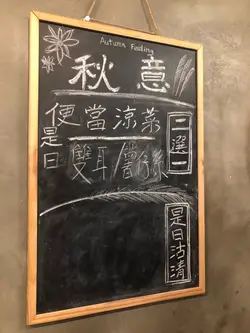 Autumn Feeling
秋意
便當涼菜
是日
二選一
雙耳/
是日沽清